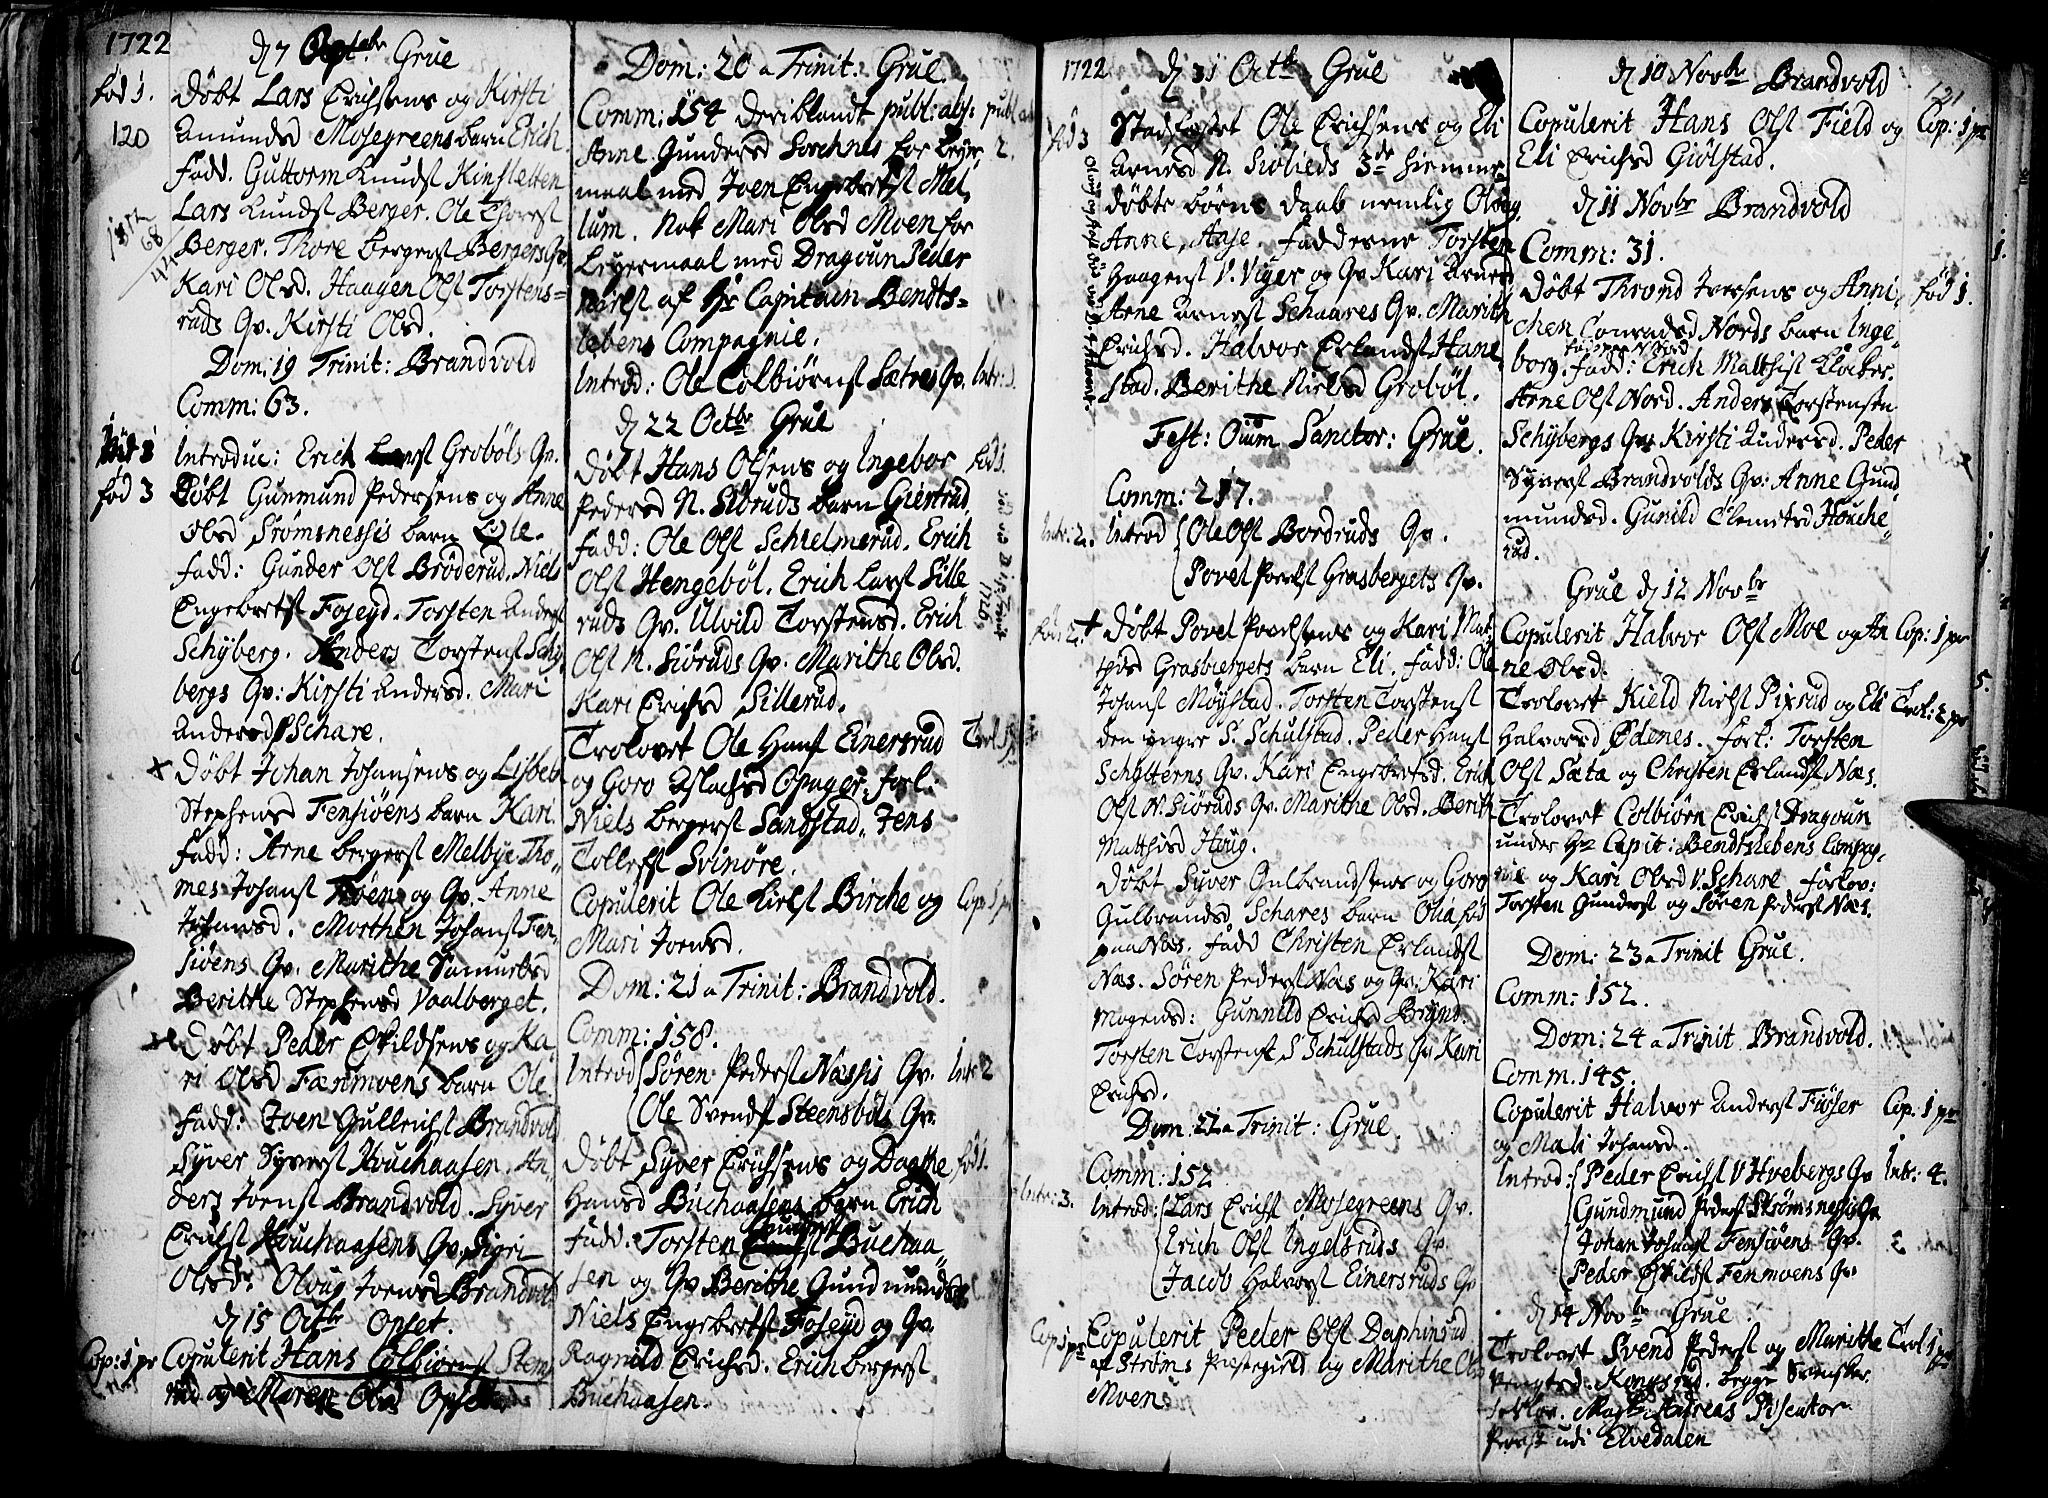 1722
d 7 Octobr: Grue
fød 1.
Døbt Lars Erichsens og Kirsti
120
Amundsd Mosegreens barn Erich.
Fadd. Guttorm Knudsſt Kinsletten
Lars Knudsſt Berger. Ole Thoresſt
Berger. Thore Bergersſt Bergers Qv.
Kari Olsd. Haagen Olsſt Torstens=
ruds Qv. Kirsti Olsd.
Dom: 19 Trinit: Brandvold
Comm: 63.
Introduc: Erich Larsſt Grobøls Qv.
fød 3
Døbt Gunmund Pedersens og Anne
Olsd Strømsnessis barn Ole.
Fadd: Gunder Olsſt Brøderud. Niels
Engebretsſt Foseyd. Torsten Andersſt
Schyberg. Anders Torstensſt Schy-
bergs Qv: Kirsti Andersd. Mari
Andersd Schare.
x Døbt Johan Johansens og Lisbeth
Stephensd Fensiøens barn Kari.
Fadd: Arne Bergersſt Melbye. Tho-
mes Johansſt Moen og Qv. Anne
Johansd. Morthen Johansſt Fen-
siøens Qv. Marithe Samuelsd
Berithe Stephensd Vaalberget.
Døbt Peder Eskildsens og Ka
ri Olsd Fænmoens barn Ole
Fadd: Joen Gullerichsſt Brandvold
Syver Syversſt Houchaasen. An
ders Joensſt Brandvold. Syver
Erichsſt Houchaasens Qv. Sigri
Olsd. Oloug Joensd Brandvold
d 15 Octbr Opset.
Cop: 1 pr
Copulerit Hans Colbiørnsſt Stem
rud og Maren Olsd Opset.
Dom: 20 a Trinit: Grue
Comm: 154 deriblandt publ: abs:
Anne Gundersd Sorchnes for Leyer 2.
maal med Joen Engebretsſt Mel-
lum. Nok Mari Olsd Moen for
Leyermaal med Dragoun Peder
Nielsſt af Hr Capitain Bendts=
lebens Compagnie.
Introd: Ole Colbiørnsſt Sætres Qv. Intr: 1.
d 22 Octbr Grue
Døbt Hans Olsens og Ingebor fød 1.
Pedersd N. Siøruds barn Giertrud.
Fadd: Ole Olsſt Schielmerud. Erich
Olsſt Hengebøl. Erich Larsſt Sille
ruds Qv. Ulvild Torstensd. Erich
Olsſt N. Siøruds Qv. Marithe Olsd.
Kari Erichsd Sillerud.
Trolovet Ole Hansſt Einersrud
og Goro Aslachsd Opager. forl:
Niels Bergersſt Sandstad. Jens
Tollefsſt Svinøre.
Copulerit Ole Kielsſt Birche og Cop: 1 pr
Mari Joensd.
Dom: 21 a Trinit: Brandvold.
Comm: 158.
Introd Søren Pedersſt Næssis Qv. Intr: 2
Ole Svendsſt Steensbøls Qv.
Døbt Syver Erichsens og Dorthe fød 1.
Hansd Buchaasens barn Erich
Fadd: Torsten Buchaa-
sen og Qv Berithe Gundmundsd
Niels Engebretsſt Foseyd og Qv
Ragnild Erichsd. Erich Bergersſt
Buchaasen.
1722
d 31 Octbr Grue
fød 3
Stadfæstet Ole Erichsens og Eli
Arnesd N. Siølieds 3de hiemme
døbte børns daab nemlig Oloug,
Anne, Aase. Fadderne Torsten
Haagensſt V. Viger og Qv Kari Arnesd
Arne Arnesſt Schaares Qv. Marith
Erichsd. Halvor Erlandsſt Hane
stad. Berithe Nielsd Grobøl.
Fest: Omn. Sanctor: Grue.
Comm: 217.
Intr: 2. Introd Ole Olsſt Bordruds Qv.
Povel Povelsſt Grasbergets Qv.
Døbt Povel Povelsens og Kari Mat
hisd Grasbergets barn Eli. Fadd: Ole
Johansſt Møystad. Torsten Torstensſt
den yngre S. Schulstad. Peder Hansſt
Schytterns Qv. Kari Engebretsd. Erich
Olsſt N. Siøruds Qv. Marithe Olsd. Berith
Matthisd Houg.
Døbt Syver Gulbrandsens og Goro
Gulbrandsd Schares barn Olia fød
paa Næs. Fadd Christen Erlandsſt
Næs. Søren Pedersſt Næs og Qv. Kari
Mogensd: Gunnild Erichsd Brynd.
Torsten Torstensſt S. Schulstads Qv Kari
Erichsd.
Dom: 22 a Trinit: Grue.
Comm: 152
Intr: 3. Introd: Lars Erichsſt Mosegreens Qv.
Erich Olsſt Ingelsruds Qv.
Jacob Halvorsſt Einersruds Qv
Cop 1 pr
Copulerit Peder Olsſt Daphinrud
af Strøms Præstegield og Marithe Ols
Moen
d 10 Novbr Brandvold
121
Copulerit Hans Olsſt Field og Cop: 1 pr
Eli Erichsd Giølstad.
d 11 Novbr Brandvold
Comm: 31.
Døbt Thrond Iversens og Anni- fød 1.
chen Conradsd Nords barn Inge-
borg. Fadd: Erich Matthisſt Klocker.
Arne Olsſt Nord. Anders Torstensen
Schybergs Qv Kirsti Andersd. Peder
Syversſt Brandvolds Qv: Anne Gund
mundsd. Gunild Clemetsd Houche
rud.
Grue d 12 Novbr
Copulerit Halvor Olsſt Moe og An Cop: 1 pr
ne Olsd.
Trolovet Kield Nielsſt Pixrud og Eli Trol: 2 pr
Halvorsd Ødenes. forl: Torsten
Olsſt Sæta og Christen Erlandsſt Næs.
Trolovet Colbiørn Erichsſt Dragoun
under Hr Capit: Bendtslebens Compag-
nie og Kari Olsd V. Schare forlov:
Torsten Gundersſt og Søren Pedersſt Næs.
Dom: 23 a Trinit Grue.
Comm: 152.
Dom: 24 a Trinit Brandvold.
Comm. 145.
Copulerit Halvor Andersſt Fiøser Cop: 1 pr
og Mali Johansd.
Introd: Peder Erichsſt V Hvebergs Qv Intr: 4.
Gundmund Pedersſt Strømsnessis Qv
Johan Johansſt Fensiøens Qv.
Peder Eskildsſt Fenmoens Qv.
d 14 Novbr Grue
Trolovet Svend Pedersſt og Marithe Trol 1 pr
Kongsrud. begge Svensker.
forlov. Andreas Piscator
Præst udi Elvedalen